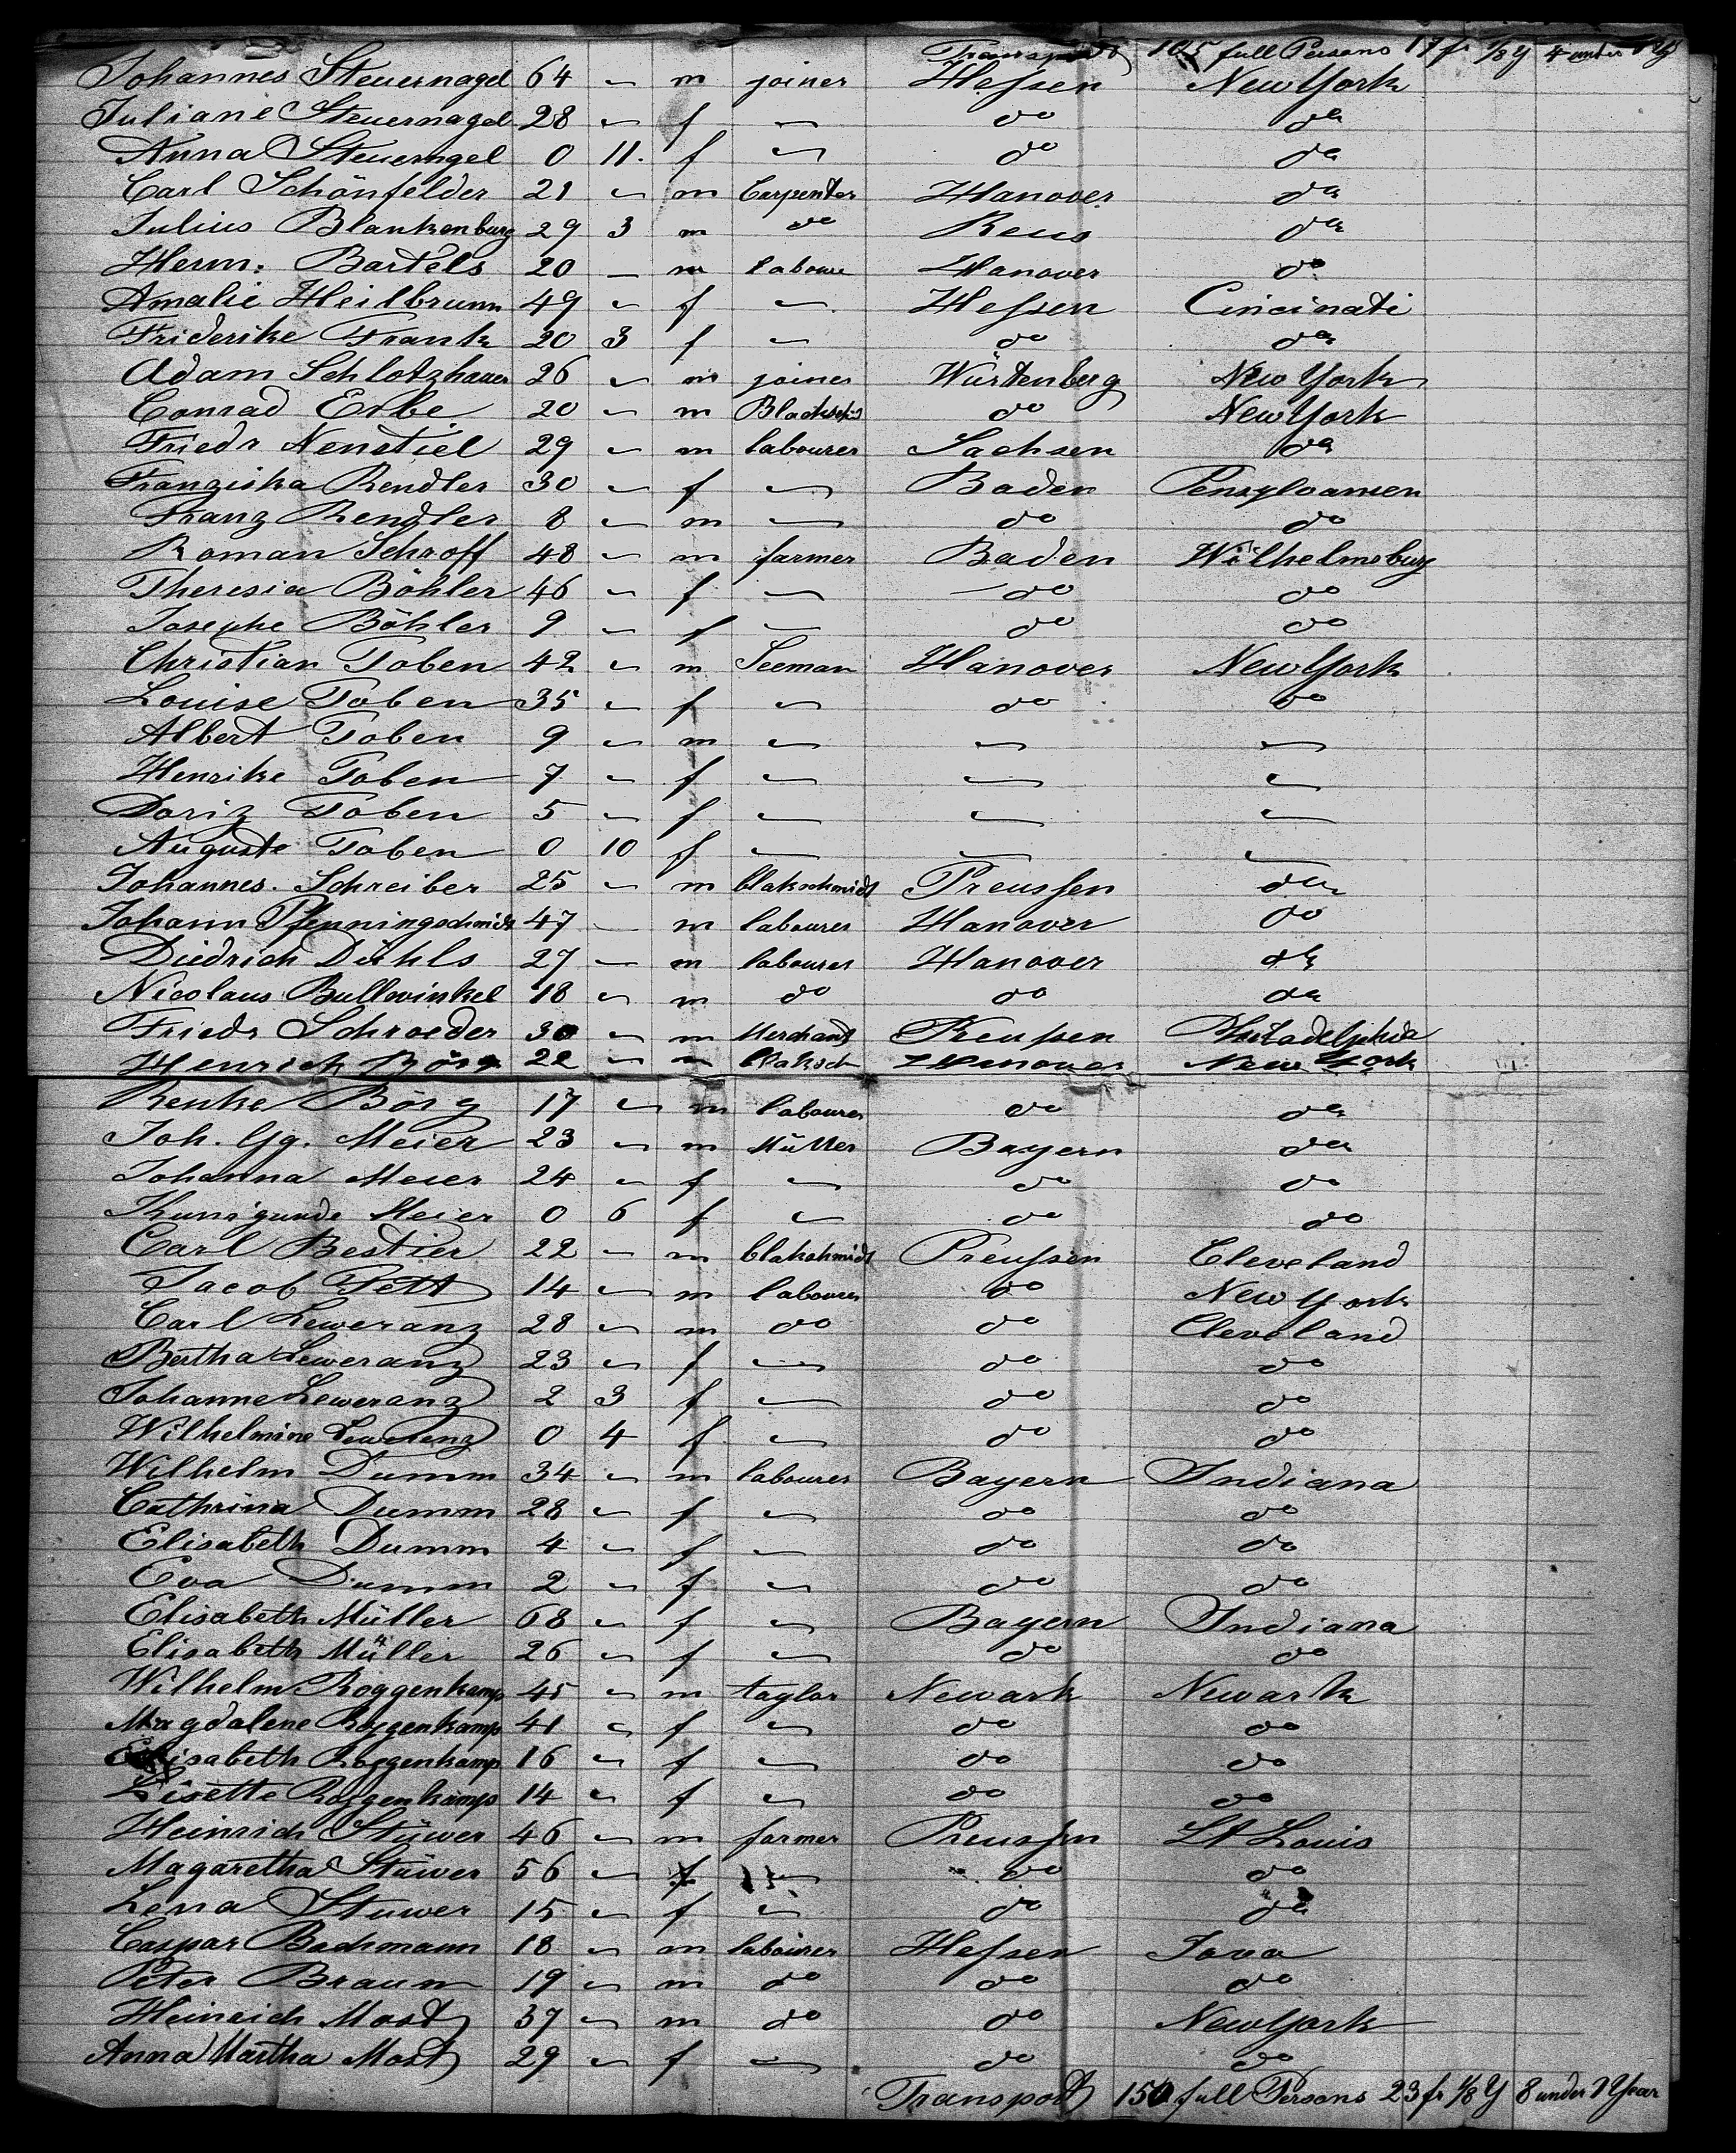 Transport 105 full Persons 17 fr 1/8 Y 4 under 1 Y
Johannes Steuernagel 64 " m joiner Hessen New York
Juliane Steuernagel 28 " f " do do
Anna Steuerngel 0 11. f " do do
Carl Schönfelder 21 " m Carpenter Hanover do
Julius Blankenburg 29 3 m do Reus do
Herm: Bartels 20 — m laboure Hanover do
Amalie Heilbrunn 49 " f " Hessen Cincinati
Friderike Frank 20 3 f " do do
Adam Schlotzhauer 26 " m joiner Würtenberg New York
Conrad Erbe 20 " m do New York
Friedr Nenstiel 29 " m labourer Sachsen do
Franziska Rendler 30 " f " Baden Pensylvansen
Franz Rendler 8 " m " do do
Roman Schroff 48 " m farmer Baden Wilhelmsburg
Theresia Böhler 46 " f " do do
Josephe Böhler 9 " f " do do
Christian Toben 42 " m Seeman Hanover New York
Louise Toben 35 " f " do do
Albert Toben 9 " m " " "
Henrike Toben 7 " f " " "
Doriz Toben 5 " f " " "
Auguste Toben 0 10 f " " "
Johannes. Schreiber 25 " m blakschmidt Preussen do
Johann Pfenningschmidt 47 — m labourer Hanover do
Diedrich Dühls 27 — m labourer Hanover do
Nicolaus Bullwinkel 18 " m do do do
Friedr Schroeder 30 " m Merchant Preussen Philadelphia
Henrich Börg 22 " m blaksch Hanover New York
Renke Börg 17 " m labourer do do
Joh. Gg. Meier 23 " m Müller Bayern do
Johanna Meier 24 " f " do do
Kunigunde Meier 0 6 f " do do
Carl Bestier 22 " m blakshmidt Preussen Cleveland
Jacob Pett 14 " m labourer do New York
Carl Leweranz 28 " m do do Cleveland
Bertha Leweranz 23 " f " do do
Johanne Leweranz 2 3 f " do do
Wilhelmine Leweranz 0 4 f " do do
Wilhelm Dumm 34 " m labourer Bayern Indiana
Cathrina Dumm 28 " f " do do
Elisabeth Dumm 4 " f " do do
Eva Dumm 2 " f " do do
Elisabeth Müller 68 " f " Bayern Indiana
Elisabeth Müller 26 " f " do do
Wilhelm Roggenkamp 45 " m taylor Newark Newark
Magdalene Roggenkamp 41 " f " do do
Elisabeth Roggenkamp 16 " f " do do
Lisette Roggenkamp 14 " f " do do
Heinrich Stüwer 46 " m farmer Preussen St Louis
Magaretha Stüwer 56 " f " do do
Lena Stuwer 15 " f " do do
Caspar Bachmann 18 " m labourer Hessen Iowa
Peter Braum 19 " m do do do
Heinrich Most 37 " m do do New York
Anna Martha Most 29 " f " do do
Transport 150 full Persons 23 fr 1/8 Y 8 under 1 Year